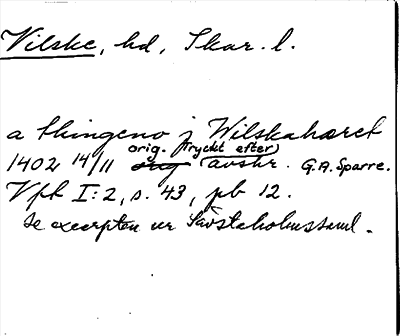 Vilske, hd, Skar. l.
a thingeno j Wilskahæret
orig. (tryckt efter)
1402 14/11 orig avskr. G.A. Sparre.
Vpk I:2, s. 43, pb 12.
Se excerpten ur Sävstaholmssaml.